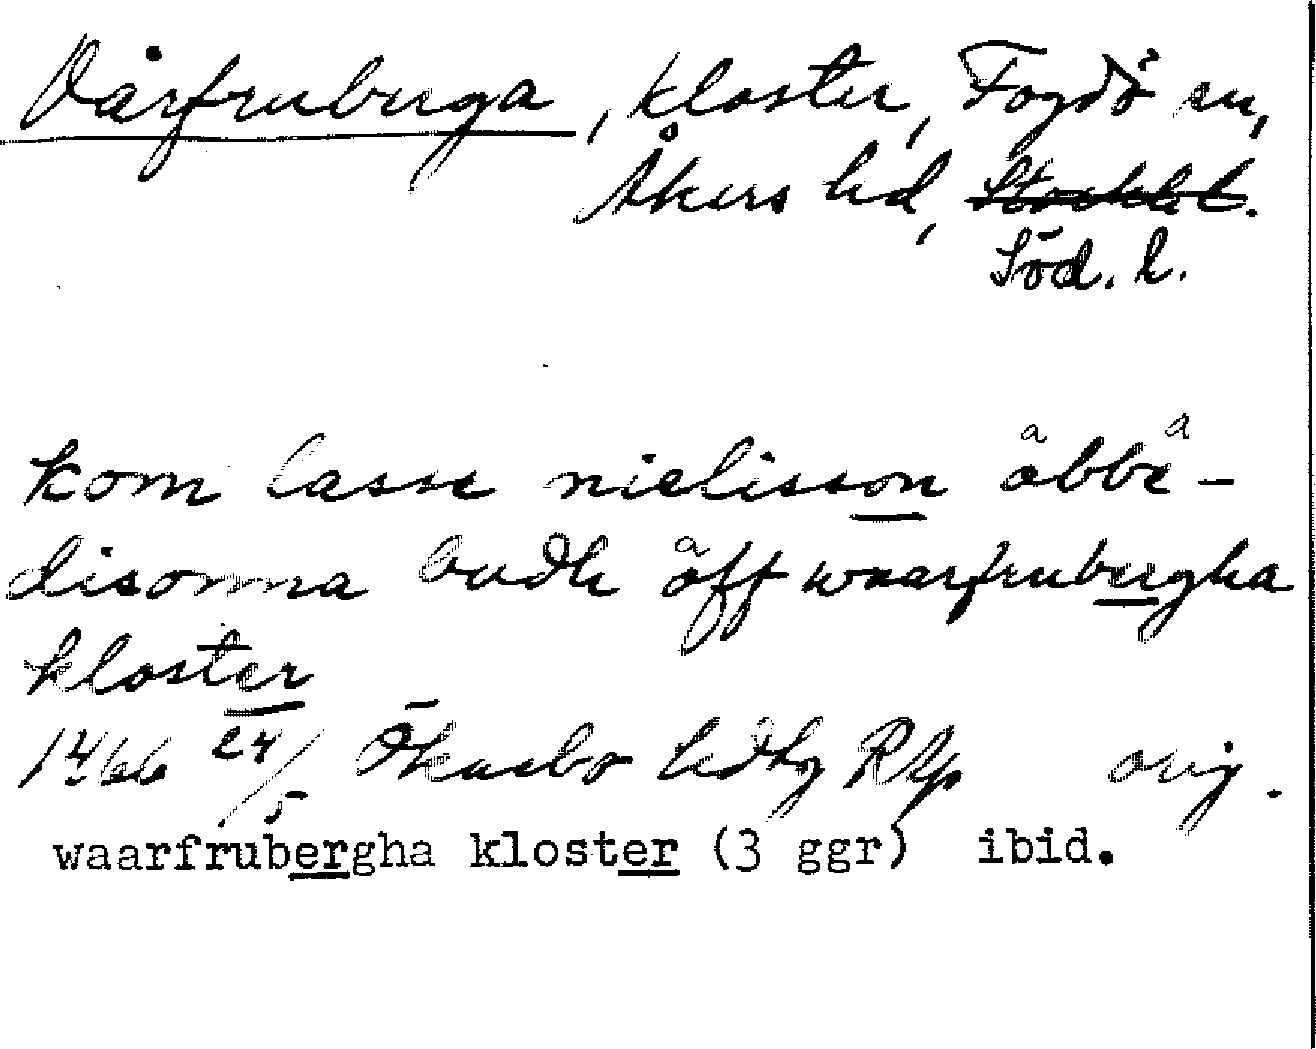 Vårfruberga, kloster, Fogdö sn,
Åkers hd, Stockh. l.
Söd. l.
kom lasse nielisson åbbå-
disonna budh åff waarfrubergha
kloster
1466 24/5 Åkerbo hd RAp orig.
waarfrubergha kloster (3 ggr) ibid.